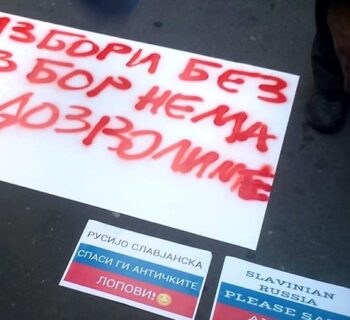 ИЗБОРИ БЕЗ
ИЗБОР НЕМА
ДОЗВОЛИМЕ
РУСИЈО СЛАВЈАНСКА
СПАСИ ГИ АНТИЧКИТЕ
ЛОПОВИ!
SLAVINIAN
RUSSIA
PLEASE